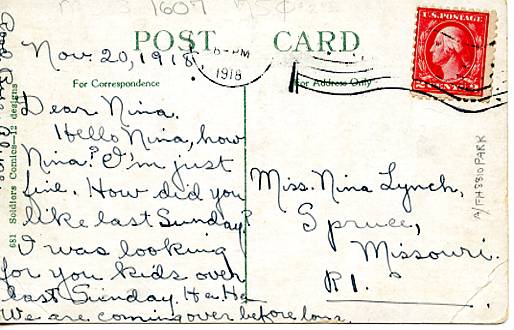 1607 75¢
POST CARD
U.S. POSTAGE
Nov. 20, 1918.
PM
1918
For Correspondence
For Address Only
Dear Nina.
Hello Nina, how
Nina? I'm just
fine. How did you
like last Sunday?
I was looking
for you kids over
last Sunday. Ha. Ha
We are coming over before long.
Miss. Nina Lynch,
Spruce,
Missouri.
R1.
681 Soldiers Comics—12 designs